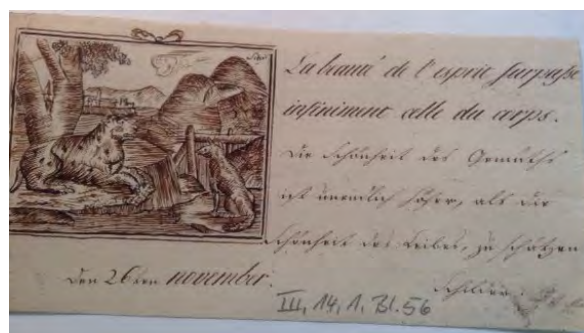 La beauté de l'esprit surpasse
infiniment celle du corps.
Die Schönheit des Gemüths
ist unendlich höher, als die
Schönheit des Leibes, zu schätzen
Den 26ten november.
III, 14, 1, Bl. 56